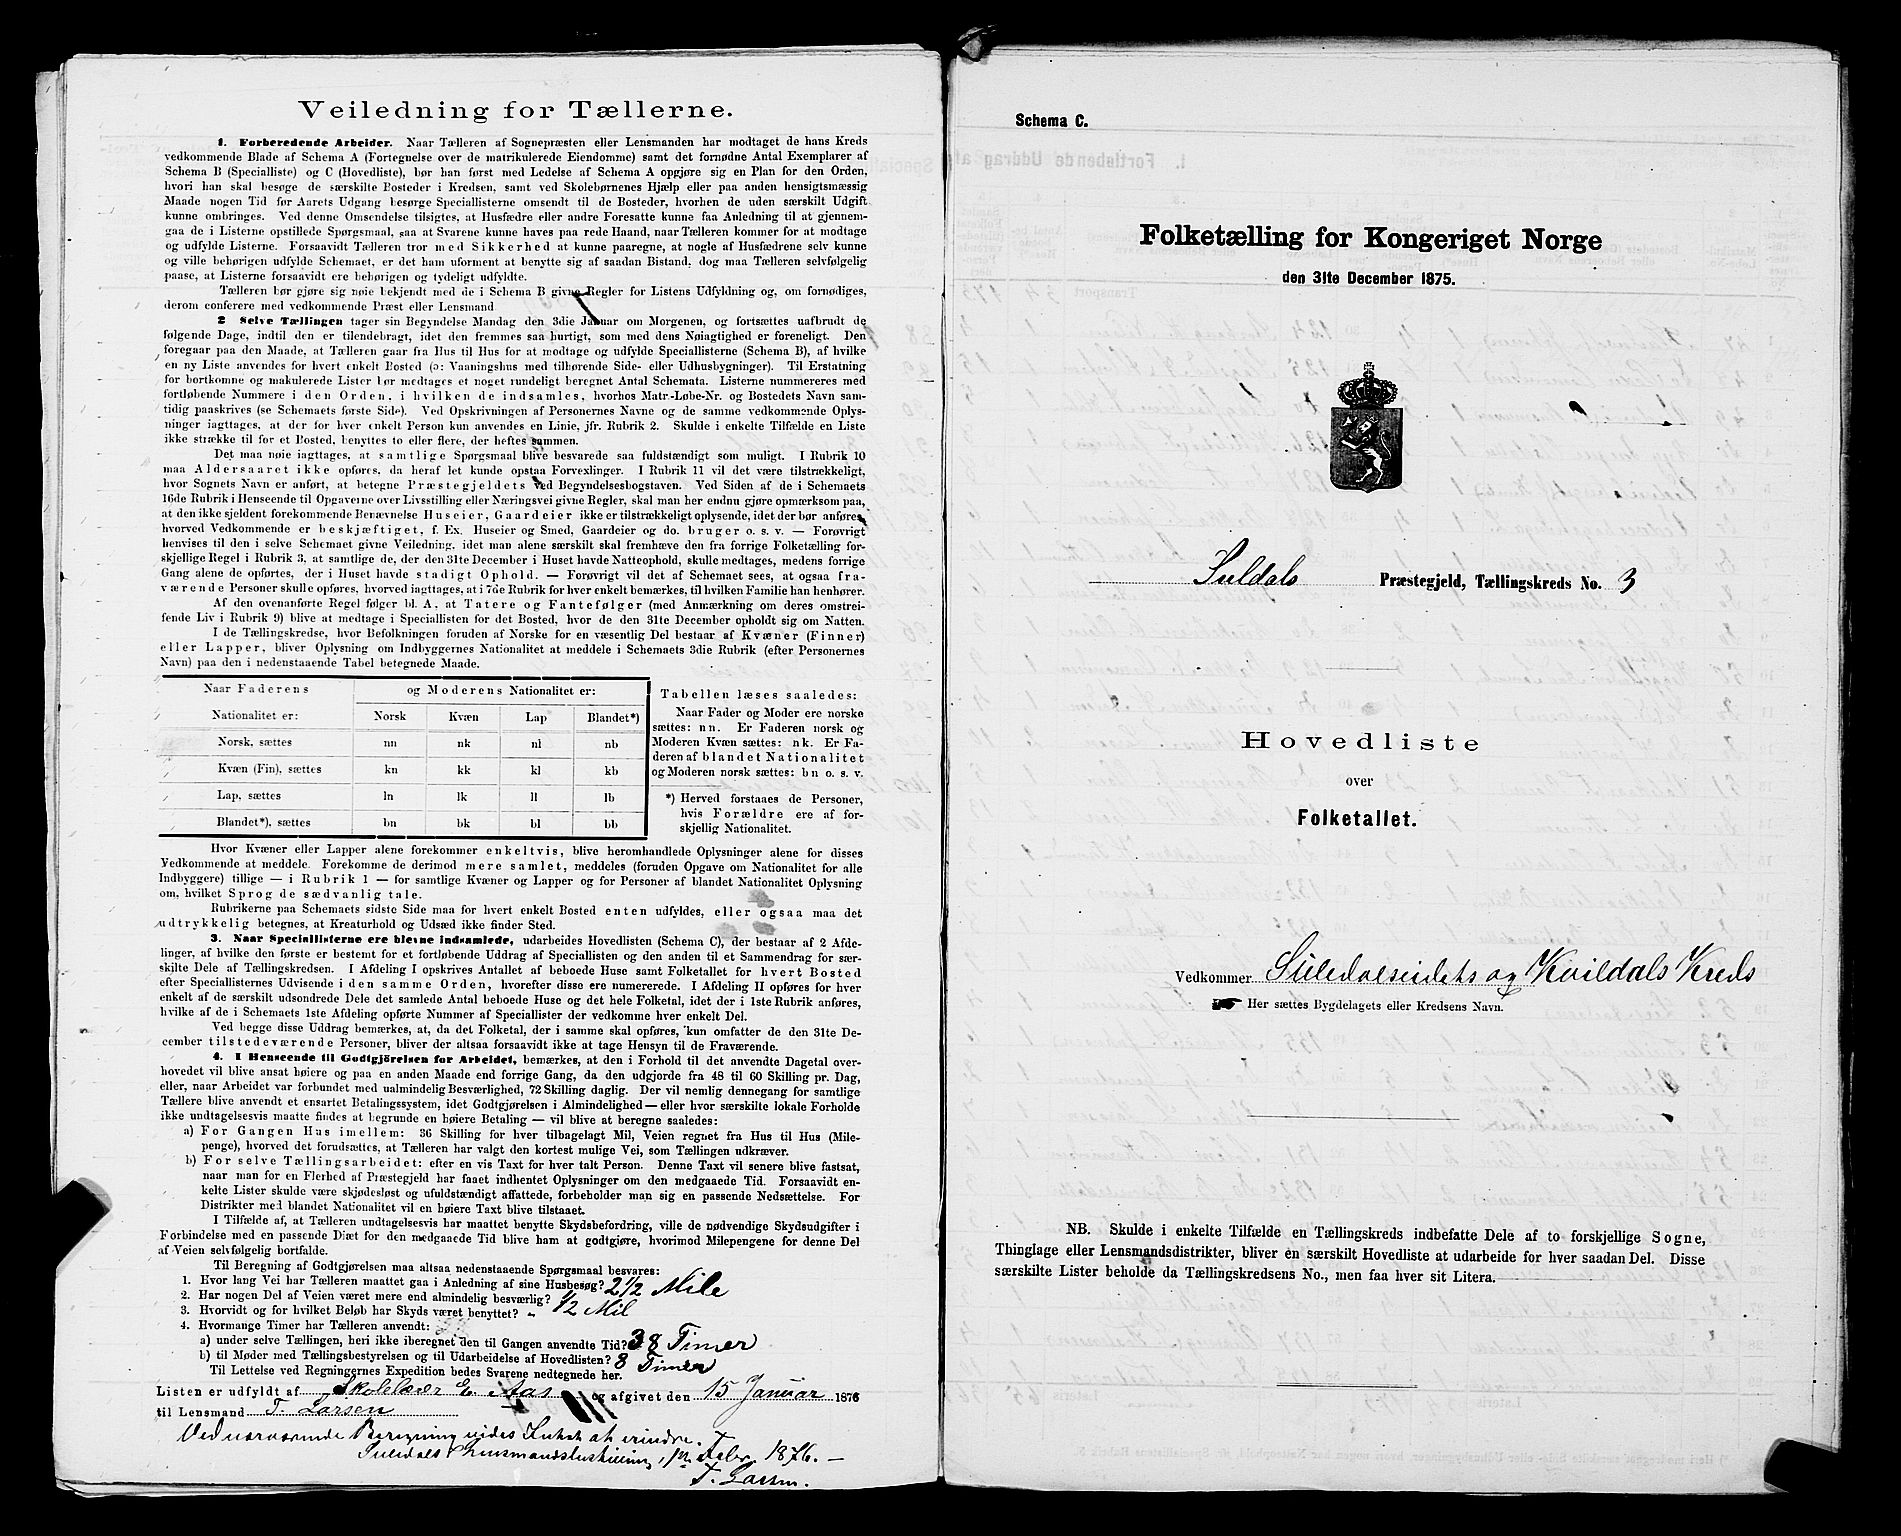 Veiledning for Tællerne.
1. Forberedende Arbeider. Naar Tælleren af Sognepræsten eller Lensmanden har modtaget de hans Kreds
vedkommende Blade af Schema A (Fortegnelse over de matrikulerede Eiendomme) samt det fornødne Antal Exemplarer af
Schema B (Specialliste) og C (Hovedliste), bør han først med Ledelse af Schema A opgjøre sig en Plan for den Orden,
hvori han skal besøge de særskilte Bosteder i Kredsen, samt ved Skolebørnenes Hjælp eller paa anden hensigtsmæssig
Maade nogen Tid før Aarets Udgang besørge Speciallisterne omsendt til de Bosteder, hvorhen de uden særskilt Udgift
kunne ombringes. Ved denne Omsendelse tilsigtes, at Husfædre eller andre Foresatte kunne faa Anledning til at gjennem-
gaa de i Listerne opstillede Spørgsmaal, saa at Svarene kunne haves paa rede Haand, naar Tælleren kommer for at modtage
og udfylde Listerne. Forsaavidt Tælleren tror med Sikkerhed at kunne paaregne, at nogle af Husfædrene selv kunne
og ville behørigen udfylde Schemaet, er det ham uforment at benytte sig af saadan Bistand, dog maa Tælleren selvfølgelig
paase, at Listerne forsaavidt ere behørigen og tydeligt udfyldte.
Tælleren bør gjøre sig nøie bekjendt med de i Schema B givne Regler for Listens Udfyldning og, om fornødiges,
derom conferere med vedkommende Præst eller Lensmand
2 Selve Tællingen tager sin Begyndelse Mandag den 3die Januar om Morgenen, og fortsættes uafbrudt de
følgende Dage, indtil den er tilendebragt, idet den fremmes saa hurtigt, som med dens Nøiagtighed er foreneligt. Den
foregaar paa den Maade, at Tælleren gaar fra Hus til Hus for at modtage og udfylde Speciallisterne (Schema B), af hvilke
en ny Liste anvendes for hvert enkelt Bosted (ɔ: Vaaningshus med tilhørende Side- eller Udhusbygninger). Til Erstatning
for bortkomne og makulerede Lister bør medtages et noget rundeligt beregnet Antal Schemata. Listerne nummereres med
fortløbende Nummere i den Orden, i hvilken de indsamles, hvorhos Matr.-Løbe-Nr. og Bostedets Navn sam-
tidig paaskrives (se Schemaets første Side). Ved Opskrivningen af Personernes Navne og de samme vedkommende Oplys-
ninger iagttages, at der for hver enkelt Person kun anvendes en Linie, jfr. Rubrik 2. Skulde i enkelte Tilfælde en Liste
ikke strække til for et Bosted, benyttes to eller flere, der heftes sammen.
Det maa nøie iagttages, at samtlige Spørgsmaal blive besvarede saa fuldstændigt som muligt. I Rubrik 10
maa Aldersaaret ikke opføres, da heraf let kunde opstaa Forvexlinger. I Rubrik 11 vil det være tilstrækkeligt,
hvor Sognets Navn er anført, at betegne Præstegjeldets ved Begyndelsesbogstaven. Ved Siden af de i Schemaets
16de Rubrik i Henseende til Opgaverne over Livsstilling eller Næringsvei givne Regler, skal man her endnu gjøre opmærksom paa,
at den ikke sjeldent forekommende Benævnelse Huseier, Gaardeier ikke er tilstrækkeligt oplysende, idet der bør anføres,
hvorved Vedkommende er beskjæftiget, f. Ex. Huseier og Smed, Gaardeier og do. bruger o. s. v. — Forøvrigt
henvises til den i selve Schemaet givne Veiledning, idet man alene særskilt skal fremhæve den fra forrige Folketælling for-
skjellige Regel i Rubrik 3, at samtlige de, der den 31te December i Huset havde Natteophold, skulle medtages, medens forrige
Gang alene de opførtes, der i Huset havde stadigt Ophold. — Forøvrigt vil det af Schemaet sees, at ogsaa fra-
værende Personer skulle opføres, hvorved iagttages, at i 7de Rubrik for hver enkelt bemærkes, til hvilken Familie han henhører.
Af den ovenanførte Regel følger bl. A, at Tatere og Fantefølger (med Anmærkning om deres omstrei-
fende Liv i Rubrik 9) blive at medtage i Speciallisten for det Bosted, hvor de den 31te December opholdt sig om Natten.
I de Tællingskredse, hvor Befolkningen foruden af Norske for en væsentlig Del bestaar af Kvæner (Finner)
eller Lapper, bliver Oplysning om Indbyggernes Nationalitet at meddele i Schemaets 3die Rubrik (efter Personernes
Navn) paa den i nedenstaaende Tabel betegnede Maade.
Naar Faderens og Moderens Nationalitet er:
Nationalitet er: Norsk Kvæn Lap Blandet*)
Norsk, sættes nn nk nl nb
Kvæn (Fin), sættes kn kk kl kb
Lap, sættes ln lk ll lb
Blandet*), sættes bn bk bl bb
Tabellen læses saaledes:
Naar Fader og Moder ere norske
sættes: nn. Er Faderen norsk og
Moderen Kvæn sættes: nk. Er Fa-
deren af blandet Nationalitet
og Moderen norsk sættes: bn o. s. v.
*) Herved forstaaes de Personer,
hvis Forældre ere af for-
skjellig Nationalitet.
Hvor Kvæner eller Lapper alene forekommer enkeltvis, blive heromhandlede Oplysninger alene for disses
Vedkommende at meddele. Forekomme de derimod mere samlet, meddeles (foruden Opgave om Nationalitet for alle
Indbyggere) tillige — i Rubrik 1 — for samtlige Kvæner og Lapper og for Personer af blandet Nationalitet Oplysning
om, hvilket Sprog de sædvanlig tale.
Rubrikerne paa Schemaets sidste Side maa for hvert enkelt Bosted enten udfyldes, eller ogsaa maa det
udtrykkelig betegnes, at Kreaturhold og Udsæd ikke finder Sted.
3. Naar Speciallisterne ere blevne indsamlede, udarbeides Hovedlisten (Schema C), der bestaar af 2 Afde-
linger, af hvilke den første er bestemt for et fortløbende Uddrag af Speciallisten og den anden til et Sammendrag for sær-
skilte Dele af Tællingskredsen. I Afdeling I opskrives Antallet af beboede Huse samt Folketallet for hvert Bosted
efter Speciallisternes Udvisende i den samme Orden, hvorefter disse ere numererede. I Afdeling II opføres for hver
enkelt af de særskilt udsondrede Dele det samlede Antal beboede Huse og det hele Folketal, idet der i 1ste Rubrik anføres,
hvilke af de i Schemaets 1ste Afdeling opførte Nummer af Speciallister der vedkomme hver enkelt Del.
Ved begge disse Uddrag bemærkes, at, da det Folketal, der i samme skal opføres, kun omfatter de den 31te De-
cember tilstedeværende Personer, bliver der altsaa forsaavidt ikke at tage Hensyn til de Fraværende.
4. I Henseende til Godtgjörelsen for Arbeidet, bemærkes, at den i Forhold til det anvendte Dagetal over-
hovedet vil blive ansat høiere og paa en anden Maade end forrige Gang, da den udgjorde fra 48 til 60 Skilling pr. Dag,
eller, naar Arbeidet var forbundet med ualmindelig Besværlighed, 72 Skilling daglig. Der vil nemlig dennegang for samtlige
Tællere blive anvendt et ensartet Betalingssystem, idet Godtgjørelsen i Almindelighed — eller hvor særskilte lokale Forholde
ikke undtagelsesvis maatte findes at begrunde en høiere Betaling — vil blive at beregne saaledes:
a) For Gangen Hus imellem: 36 Skilling for hver tilbagelagt Mil, Veien regnet fra Hus til Hus (Mile-
penge), hvorved det forudsættes, at Tælleren har valgt den kortest mulige Vei, som Tællingen udkræver.
b) For selve Tællingsarbeidet: efter en vis Taxt for hver talt Person. Denne Taxt vil senere blive fastsat,
naar man for en Flerhed af Præstegjeld har faaet indhentet Oplysninger om den medgaaede Tid. Forsaavidt en-
kelte Lister skulde være skjødesløst og ufuldstændigt affattede, forbeholder man sig en passende Nedsættelse. For
Distrikter med blandet Nationalitet vil en høiere Taxt blive tilstaaet.
I Tilfælde af, at Tælleren undtagelsesvis har maattet benytte Skydsbefordring, ville de nødvendige Skydsudgifter i
Forbindelse med en passende Diæt for den medgaaede Tid blive ham at godtgjøre, hvorimod Milepengene for denne Del
af Veien selvfølgelig bortfalde.
Til Beregning af Godtgjørelsen maa altsaa nedenstaaende Spørgsmaal besvares:
1. Hvor lang Vei har Tælleren maattet gaa i Anledning af sine Husbesøg? 2 1/2 Mile
2. Har nogen Del af Veien været mere end almindelig besværlig? 1/2 Mil
3. Hvorvidt og for hvilket Beløb har Skyds været benyttet? "
4. Hvormange Timer har Tælleren anvendt:
a) under selve Tællingen, heri ikke iberegnet den til Gangen anvendte Tid? 38 Timer
b) til Møder med Tællingsbestyrelsen og til Udarbeidelse af Hovedlisten? 8 Timer
Til Lettelse ved Regningernes Expedition bedes Svarene nedtegnede her.
Listen er udfyldt af Skolelærer E. Aas og afgivet den 15 Januar 1876
til Lensmand T. Larsen
Vedværende Beregning vides Intet at erindre.
Suledals Lensmandsbestilling, Febr. 1876. —
T. Larsen.
Schema C.
Folketælling for Kongeriget Norge
den 31te December 1875.
Suldals Præstegjeld, Tællingskreds No. 3
Hovedliste
over
Folketallet.
Vedkommer Suledalseidets og Kvildals Kreds
Her sættes Bygdelagets eller Kredsens Navn.
NB. Skulde i enkelte Tilfælde en Tællingskreds indbefatte Dele af to forskjellige Sogne,
Thinglage eller Lensmandsdistrikter, bliver en særskilt Hovedliste at udarbeide for hver saadan Del. Disse
særskilte Lister beholde da Tællingskredsens No., men faa hver sit Litera.